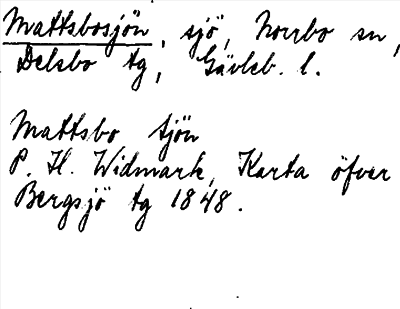 Mattsbosjön, sjö, Norrbo sn,
Delsbo tg, Gävleb. l.
Mattsbo Sjön
P. H. Widmark, Karta öfver
Bergsjö tg 1848.